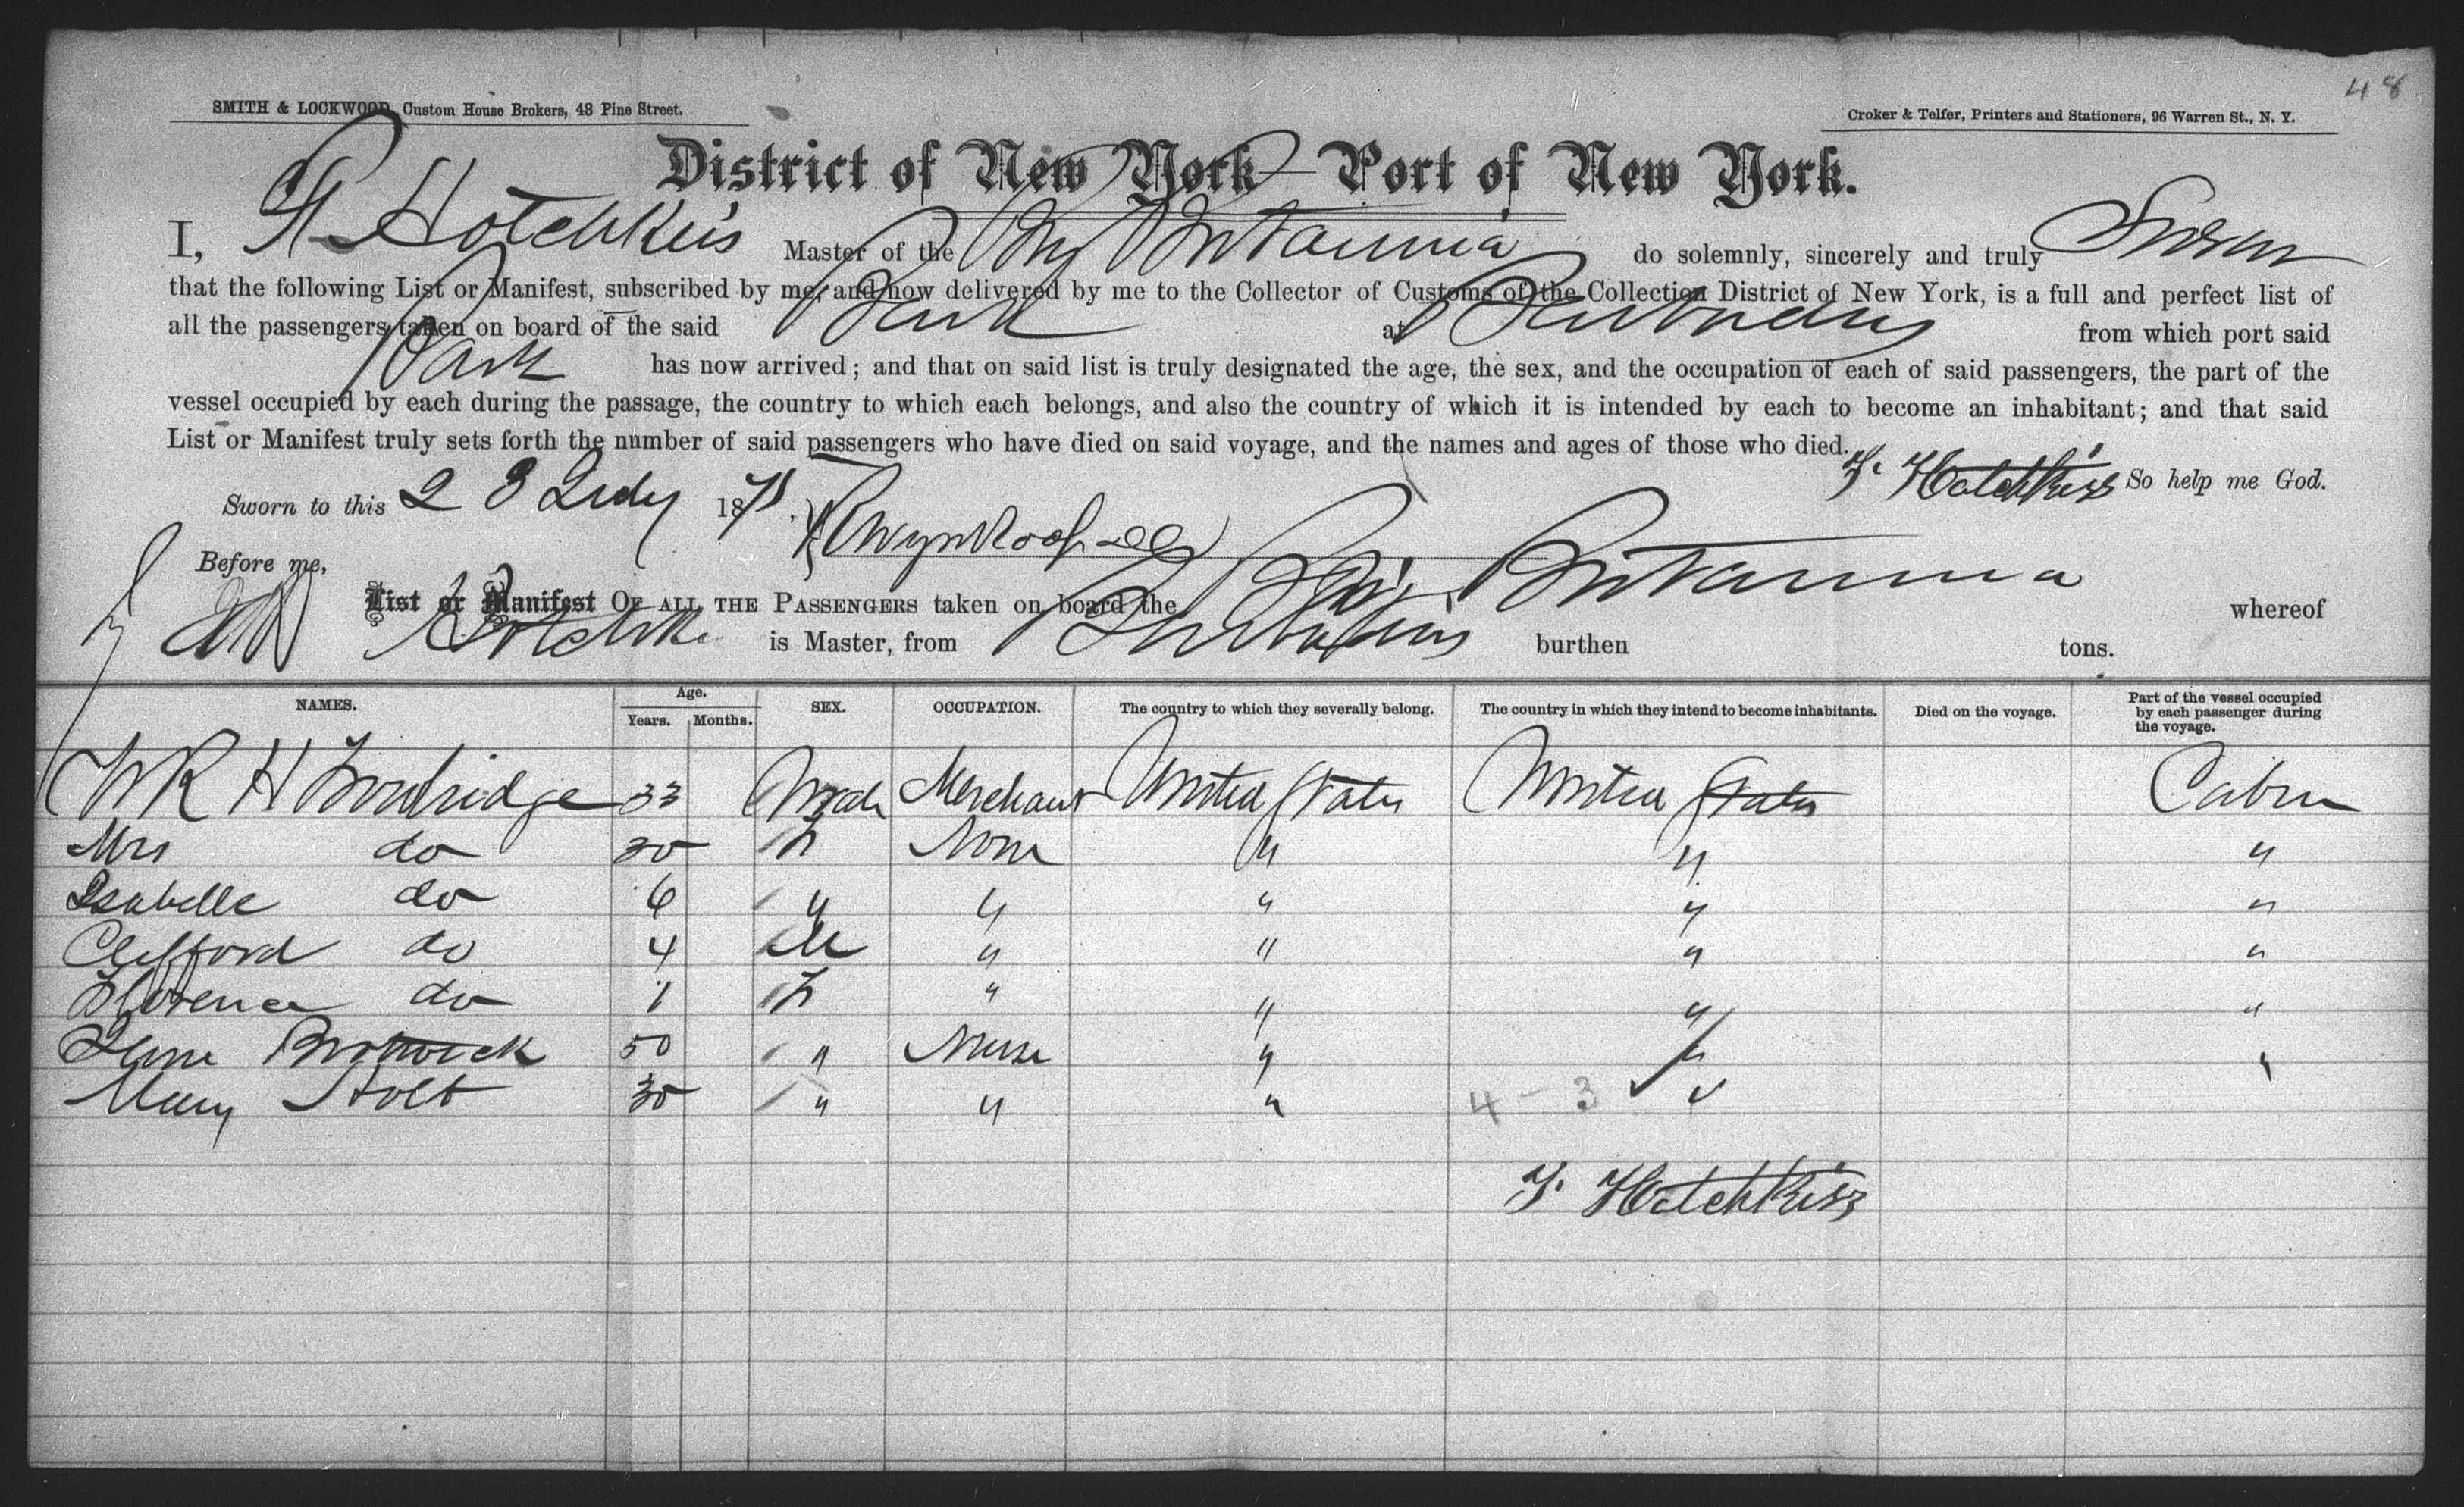 48
SMITH & LOCKWOOD, Custom House Brokers, 48 Pine Street.
Croker & Telfer, Printers and Stationers, 96 Warren St., N. Y.
District of New York—Port of New York.
I, F Hotchkiss Master of the Brig Britannia do solemnly, sincerely and truly Swear
that the following List or Manifest, subscribed by me, and now delivered by me to the Collector of Customs of the Collection District of New York, is a full and perfect list of
all the passengers taken on board of the said Bark at Barbados from which port said
Bark has now arrived; and that on said list is truly designated the age, the sex, and the occupation of each of said passengers, the part of the
vessel occupied by each during the passage, the country to which each belongs, and also the country of which it is intended by each to become an inhabitant; and that said
List or Manifest truly sets forth the number of said passengers who have died on said voyage, and the names and ages of those who died.
F. Hotchkiss So help me God.
Sworn to this 23 July 18
Before me,
List or Manifest OF ALL THE PASSENGERS taken on board the Brig Britannia whereof
Hotchkiss is Master, from Barbados burthen tons.
NAMES. Age. Years. Months. SEX. OCCUPATION. The country to which they severally belong. The country in which they intend to become inhabitants. Died on the voyage. Part of the vessel occupied by each passenger during the voyage.
33 Male Merchant United States United States Cabin
Mrs do 30 F None " " "
Isabelle do 6 " " " " "
Clifford do 4 M " " " "
Florence do 1 F " " " "
50 " Nurse " " "
Mary Holt 30 " " " "
4 - 3
F. Hotchkiss